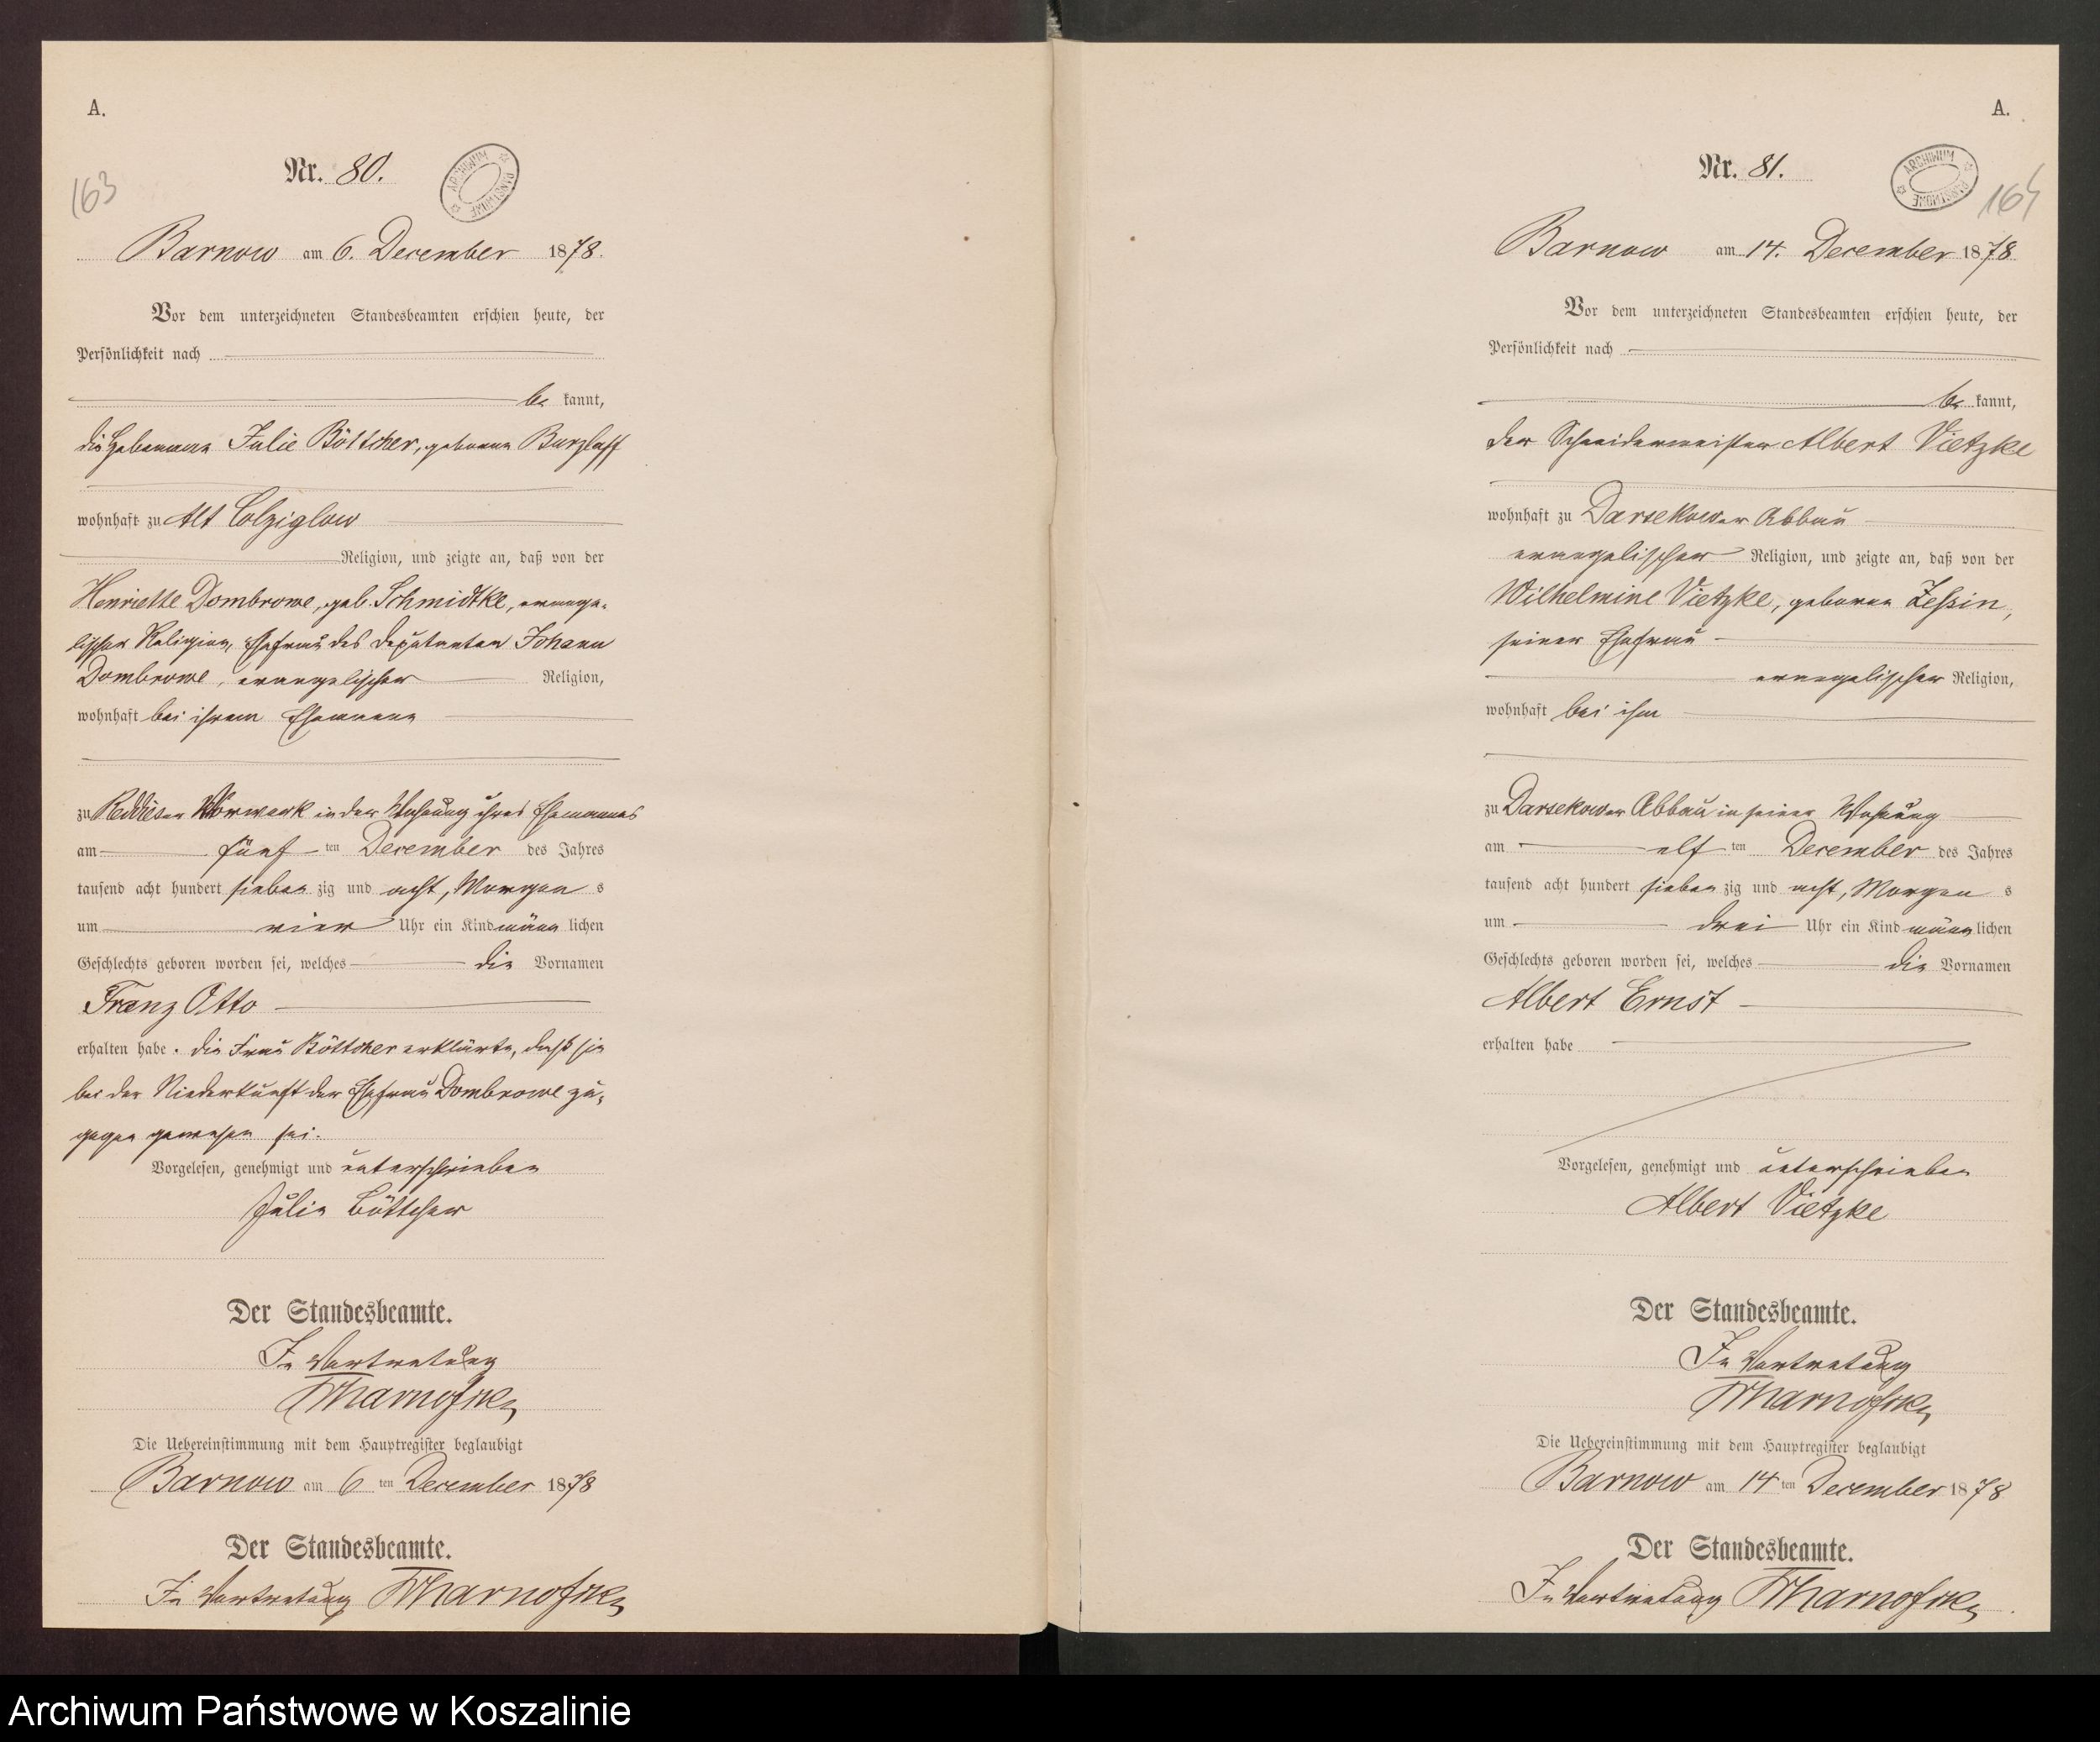 A.
Nr. 80.
ARCHIWUM PAŃSTWOWE
163
Barnow am 6. December 1878.
Vor dem unterzeichneten Standesbeamten erschien heute, der
Persönlichkeit nach
be kannt,
die Hebamme Julie Böttcher, geborene Burzlaff
wohnhaft zu Alt Colziglow
Religion, und zeigte an, daß von der
Henriette Dombrowe, geb. Schmidtke, evange-
lischer Religion, Ehefrau des Deputanten Johann
Dombrowe, evangelischer Religion,
wohnhaft bei ihrem Ehemann
zu Reddieser Vorwerk in der Wohnung ihres Ehemannes
am fünf ten December des Jahres
tausend acht hundert sieben zig und acht, Morgen s
um vier Uhr ein Kind männ lichen
Geschlechts geboren worden sei, welches die Vornamen
Franz Otto
erhalten habe. Die Frau Böttcher erklärte, daß sie
bei der Niederkunft der Ehefrau Dombrowe zu-
gegen gewesen sei.
Vorgelesen, genehmigt und unterschrieben
Julie Böttcher
Der Standesbeamte.
In Vertretung
Die Uebereinstimmung mit dem Hauptregister beglaubigt
Barnow am 6 ten December 1878
Der Standesbeamte.
In Vertretung
A.
Nr. 81.
ARCHIWUM PAŃSTWOWE
164
Barnow am 14. December 1878
Vor dem unterzeichneten Standesbeamten erschien heute, der
Persönlichkeit nach
be kannt,
der Schneidermeister Albert Vietzke
wohnhaft zu Darsekower Abbau
evangelischer Religion, und zeigte an, daß von der
Wilhelmine Vietzke, geborene Zessin,
seiner Ehefrau
evangelischer Religion,
wohnhaft bei ihm
zu Darsekower Abbau in seiner Wohnung
am elf ten December des Jahres
tausend acht hundert sieben zig und acht, Morgen s
um drei Uhr ein Kind männ lichen
Geschlechts geboren worden sei, welches die Vornamen
Albert Ernst
erhalten habe
Vorgelesen, genehmigt und unterschrieben
Albert Vietzke
Der Standesbeamte.
In Vertretung
Die Uebereinstimmung mit dem Hauptregister beglaubigt
Barnow am 14 ten December 1878
Der Standesbeamte.
In Vertretung
Archiwum Państwowe w Koszalinie